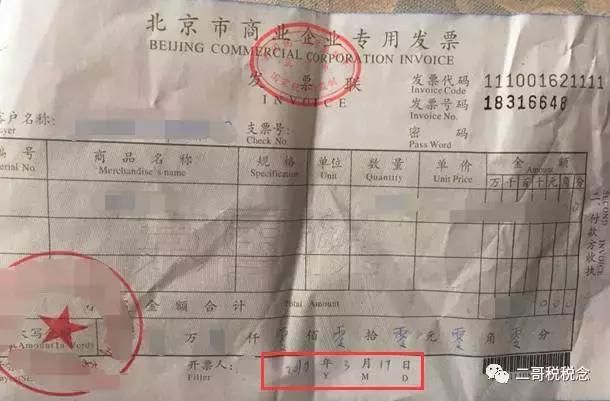 北京市商业企业专用发票
BEIJING COMMERCIAL CORPORATION INVOICE
发票联
INVOICE
发票代码 111001621111
Invoice Code
发票号码 18316648
Invoice No.
密码
Pass Word
客户名称:
支票号:
Check No.
编号 商品名称 规格 单位 数量 单价 金额
Serial No. Merchandise's name Specification Unit Quantity Unit Price Amount
万 千 百 十 元 角 分
二、付款方收执
INVOICE
金额合计 Total Amount
大写金额 万 仟 零 佰 零 拾 零 元 零 角 零 分
Amount In Words
开票人: 年 3 月 19 日
Filler Y M D
二哥税税念